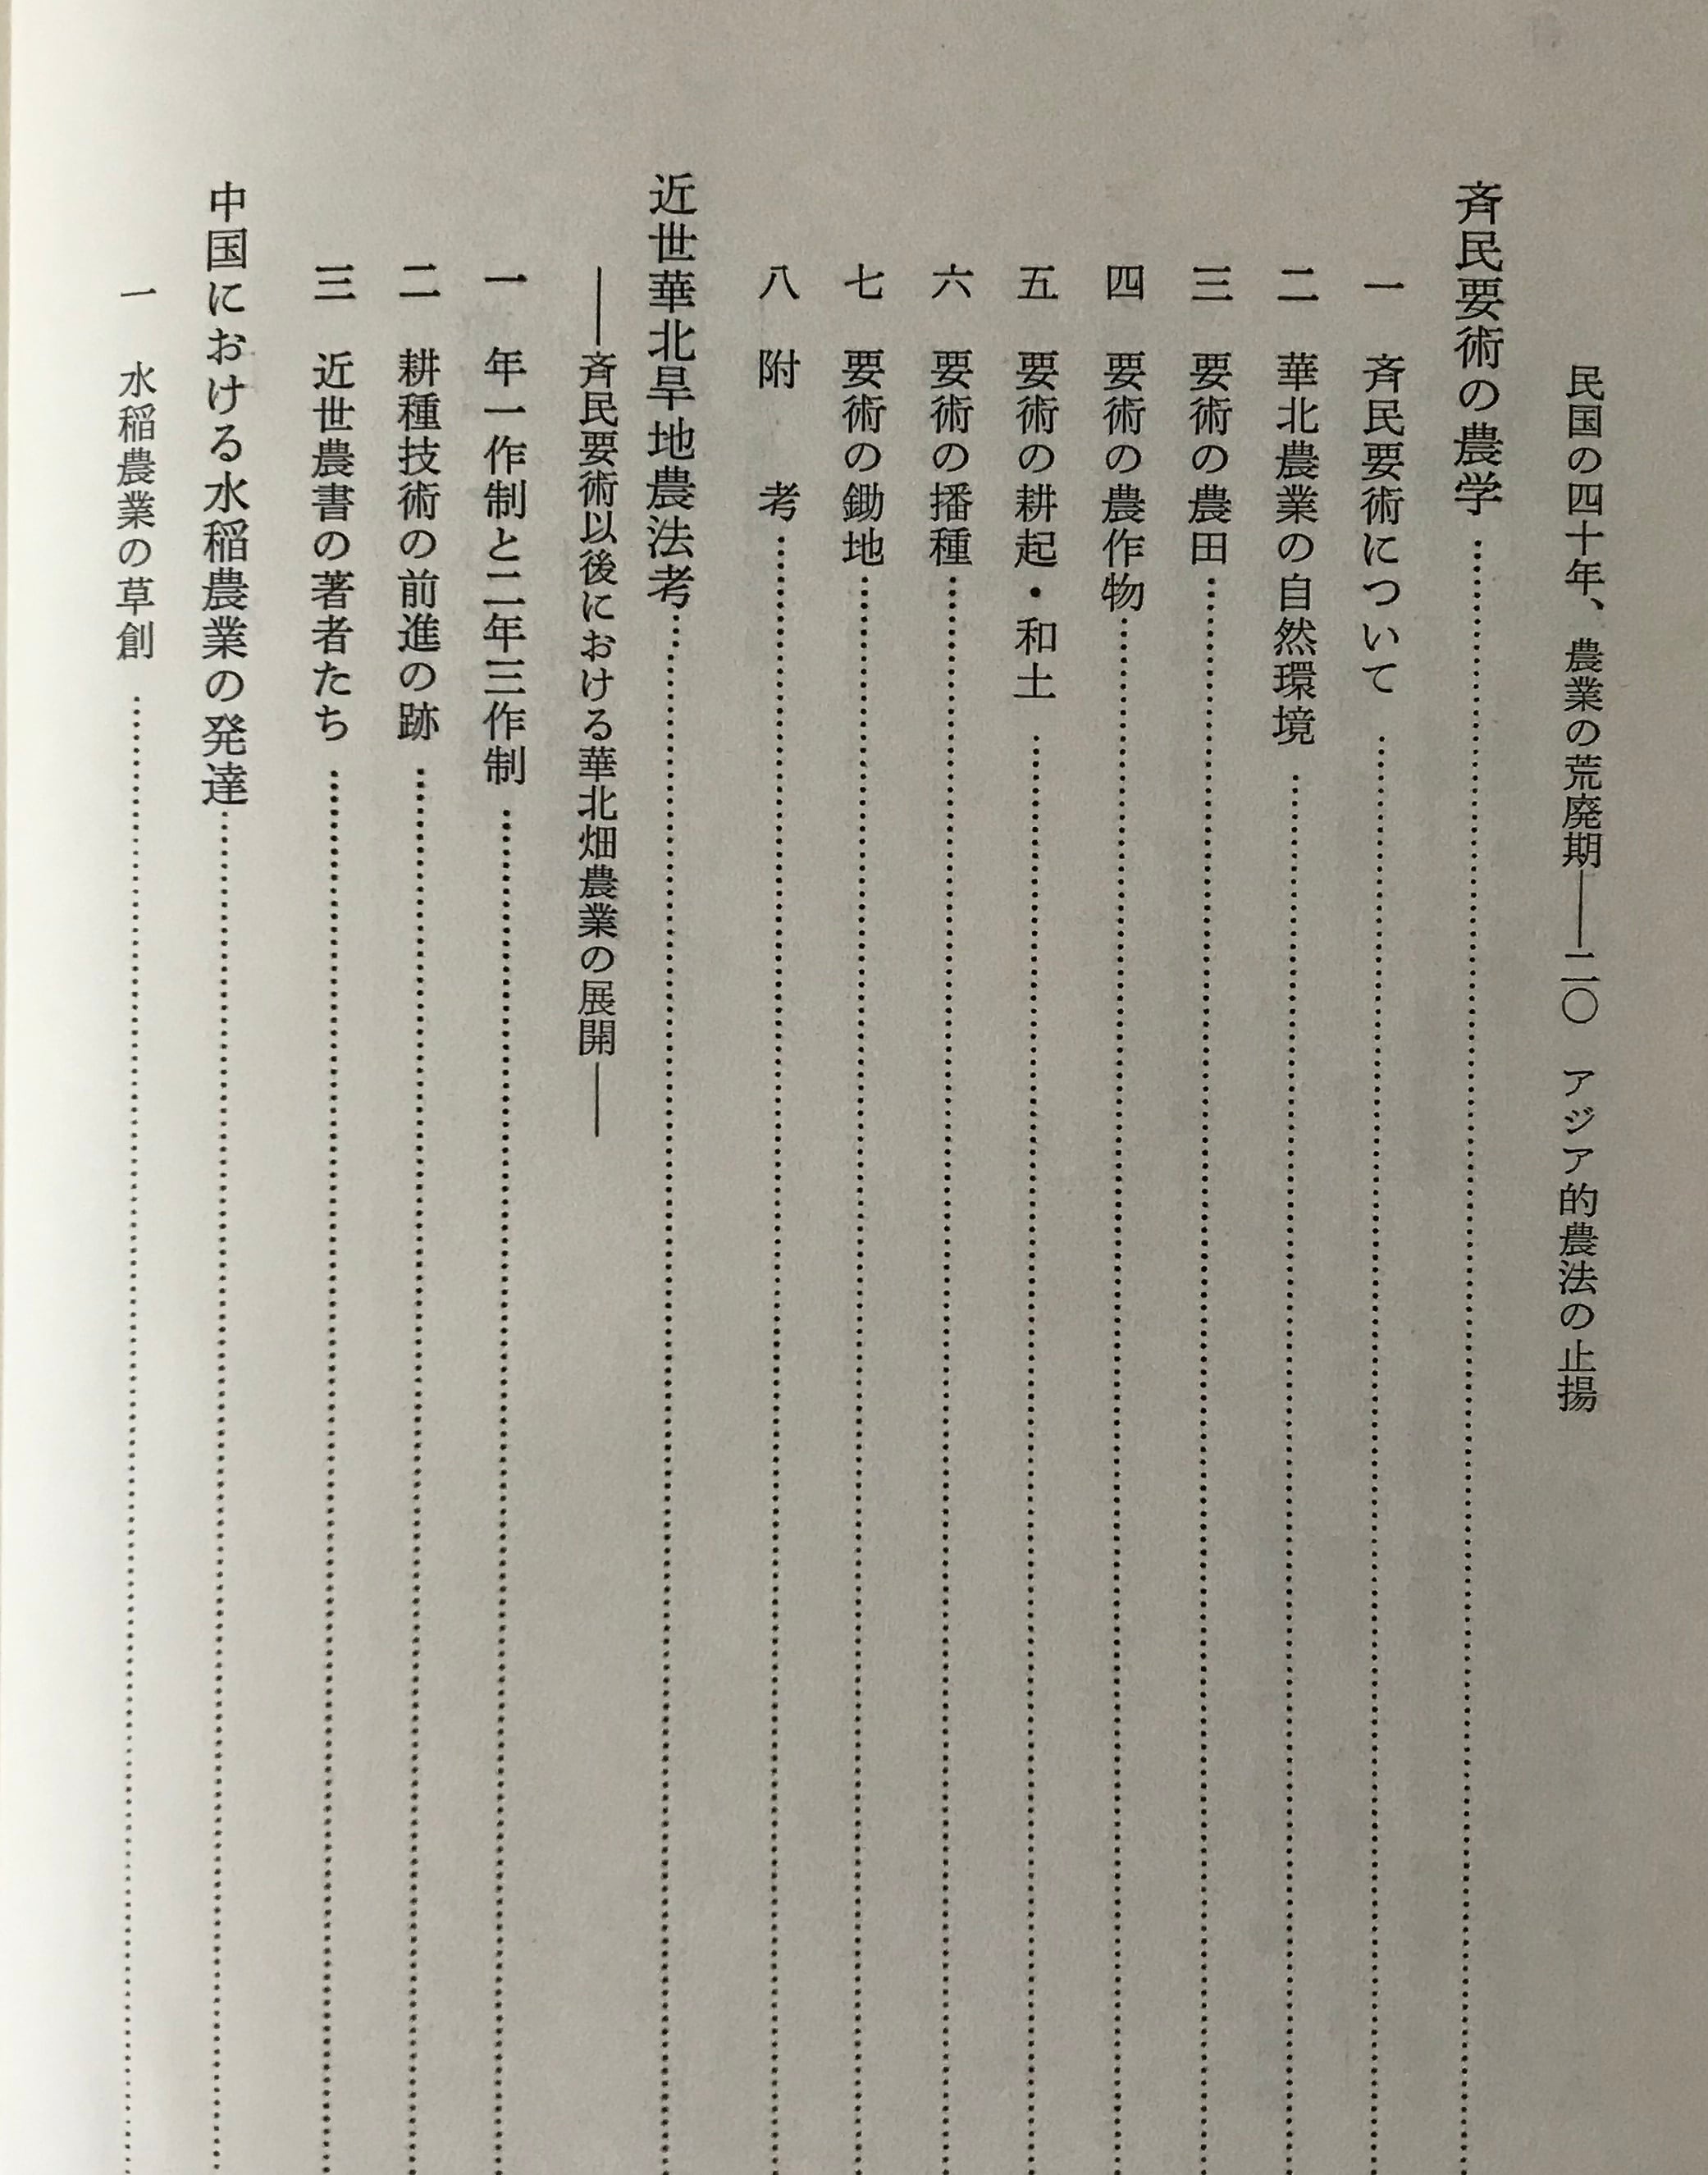 民国の四十年、農業の荒廃期――二〇　アジア的農法の止揚
斉民要術の農学……
一　斉民要術について……
二　華北農業の自然環境……
三　要術の農田……
四　要術の農作物……
五　要術の耕起・和土……
六　要術の播種……
七　要術の鋤地……
八　附　考……
近世華北旱地農法考……
――斉民要術以後における華北畑農業の展開――
一　年一作制と二年三作制……
二　耕種技術の前進の跡……
三　近世農書の著者たち……
中国における水稲農業の発達……
一　水稲農業の草創……